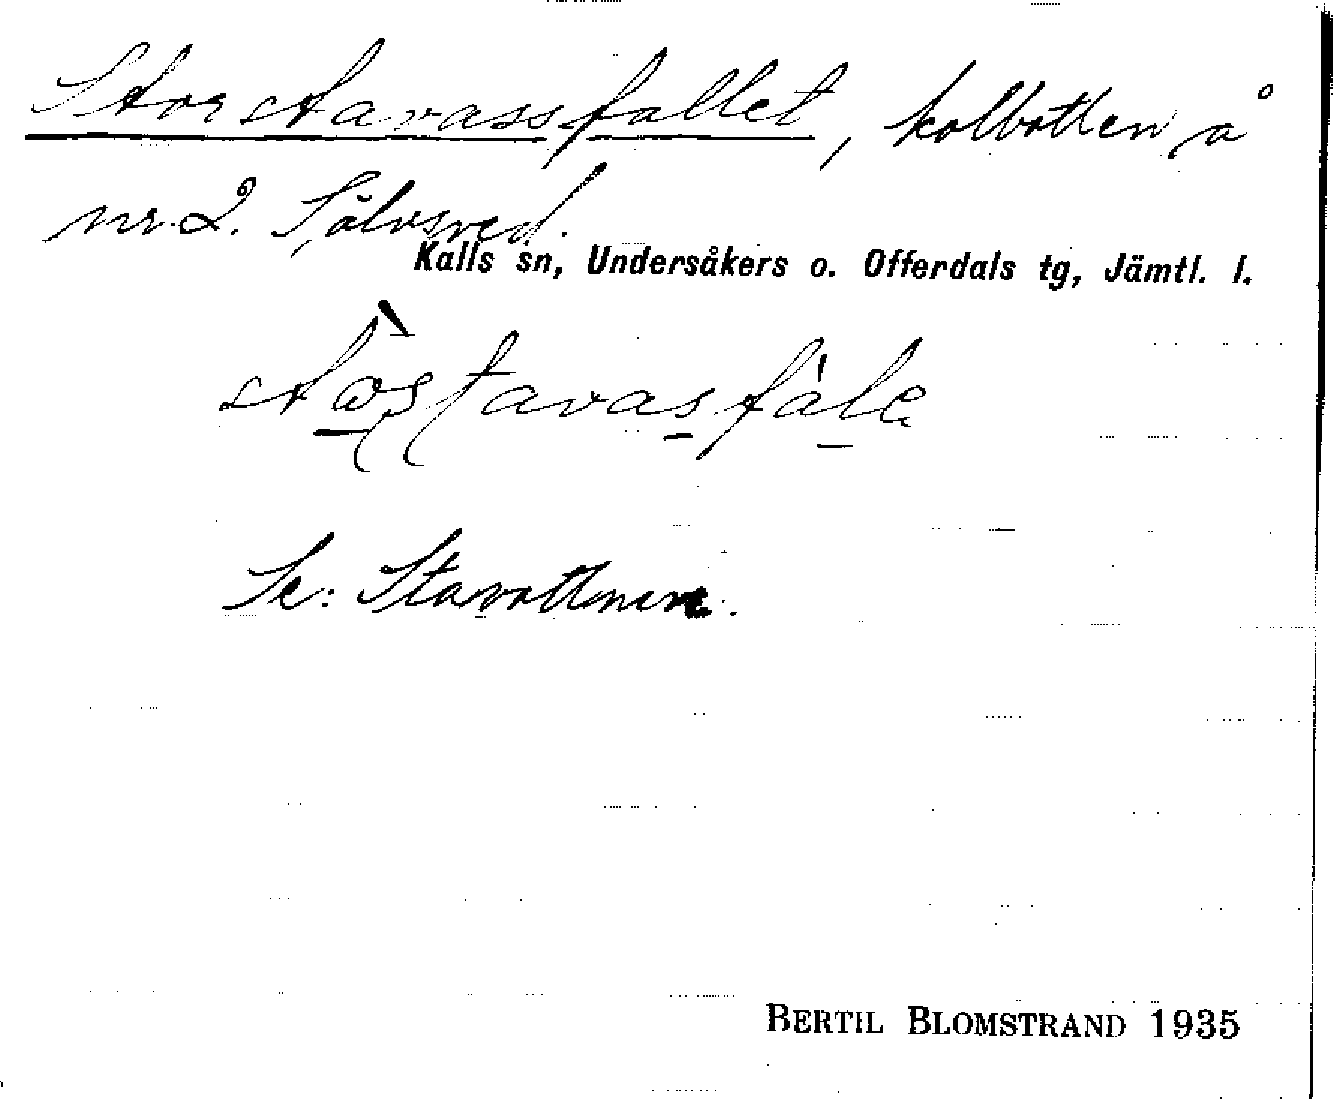 Storstavassfallet, kolbotten å
nr. 2. Sölvsved.
Kalls sn, Undersåkers o. Offerdals tg, Jämtl. l.
Se: Stavattnen.
BERTIL BLOMSTRAND 1935